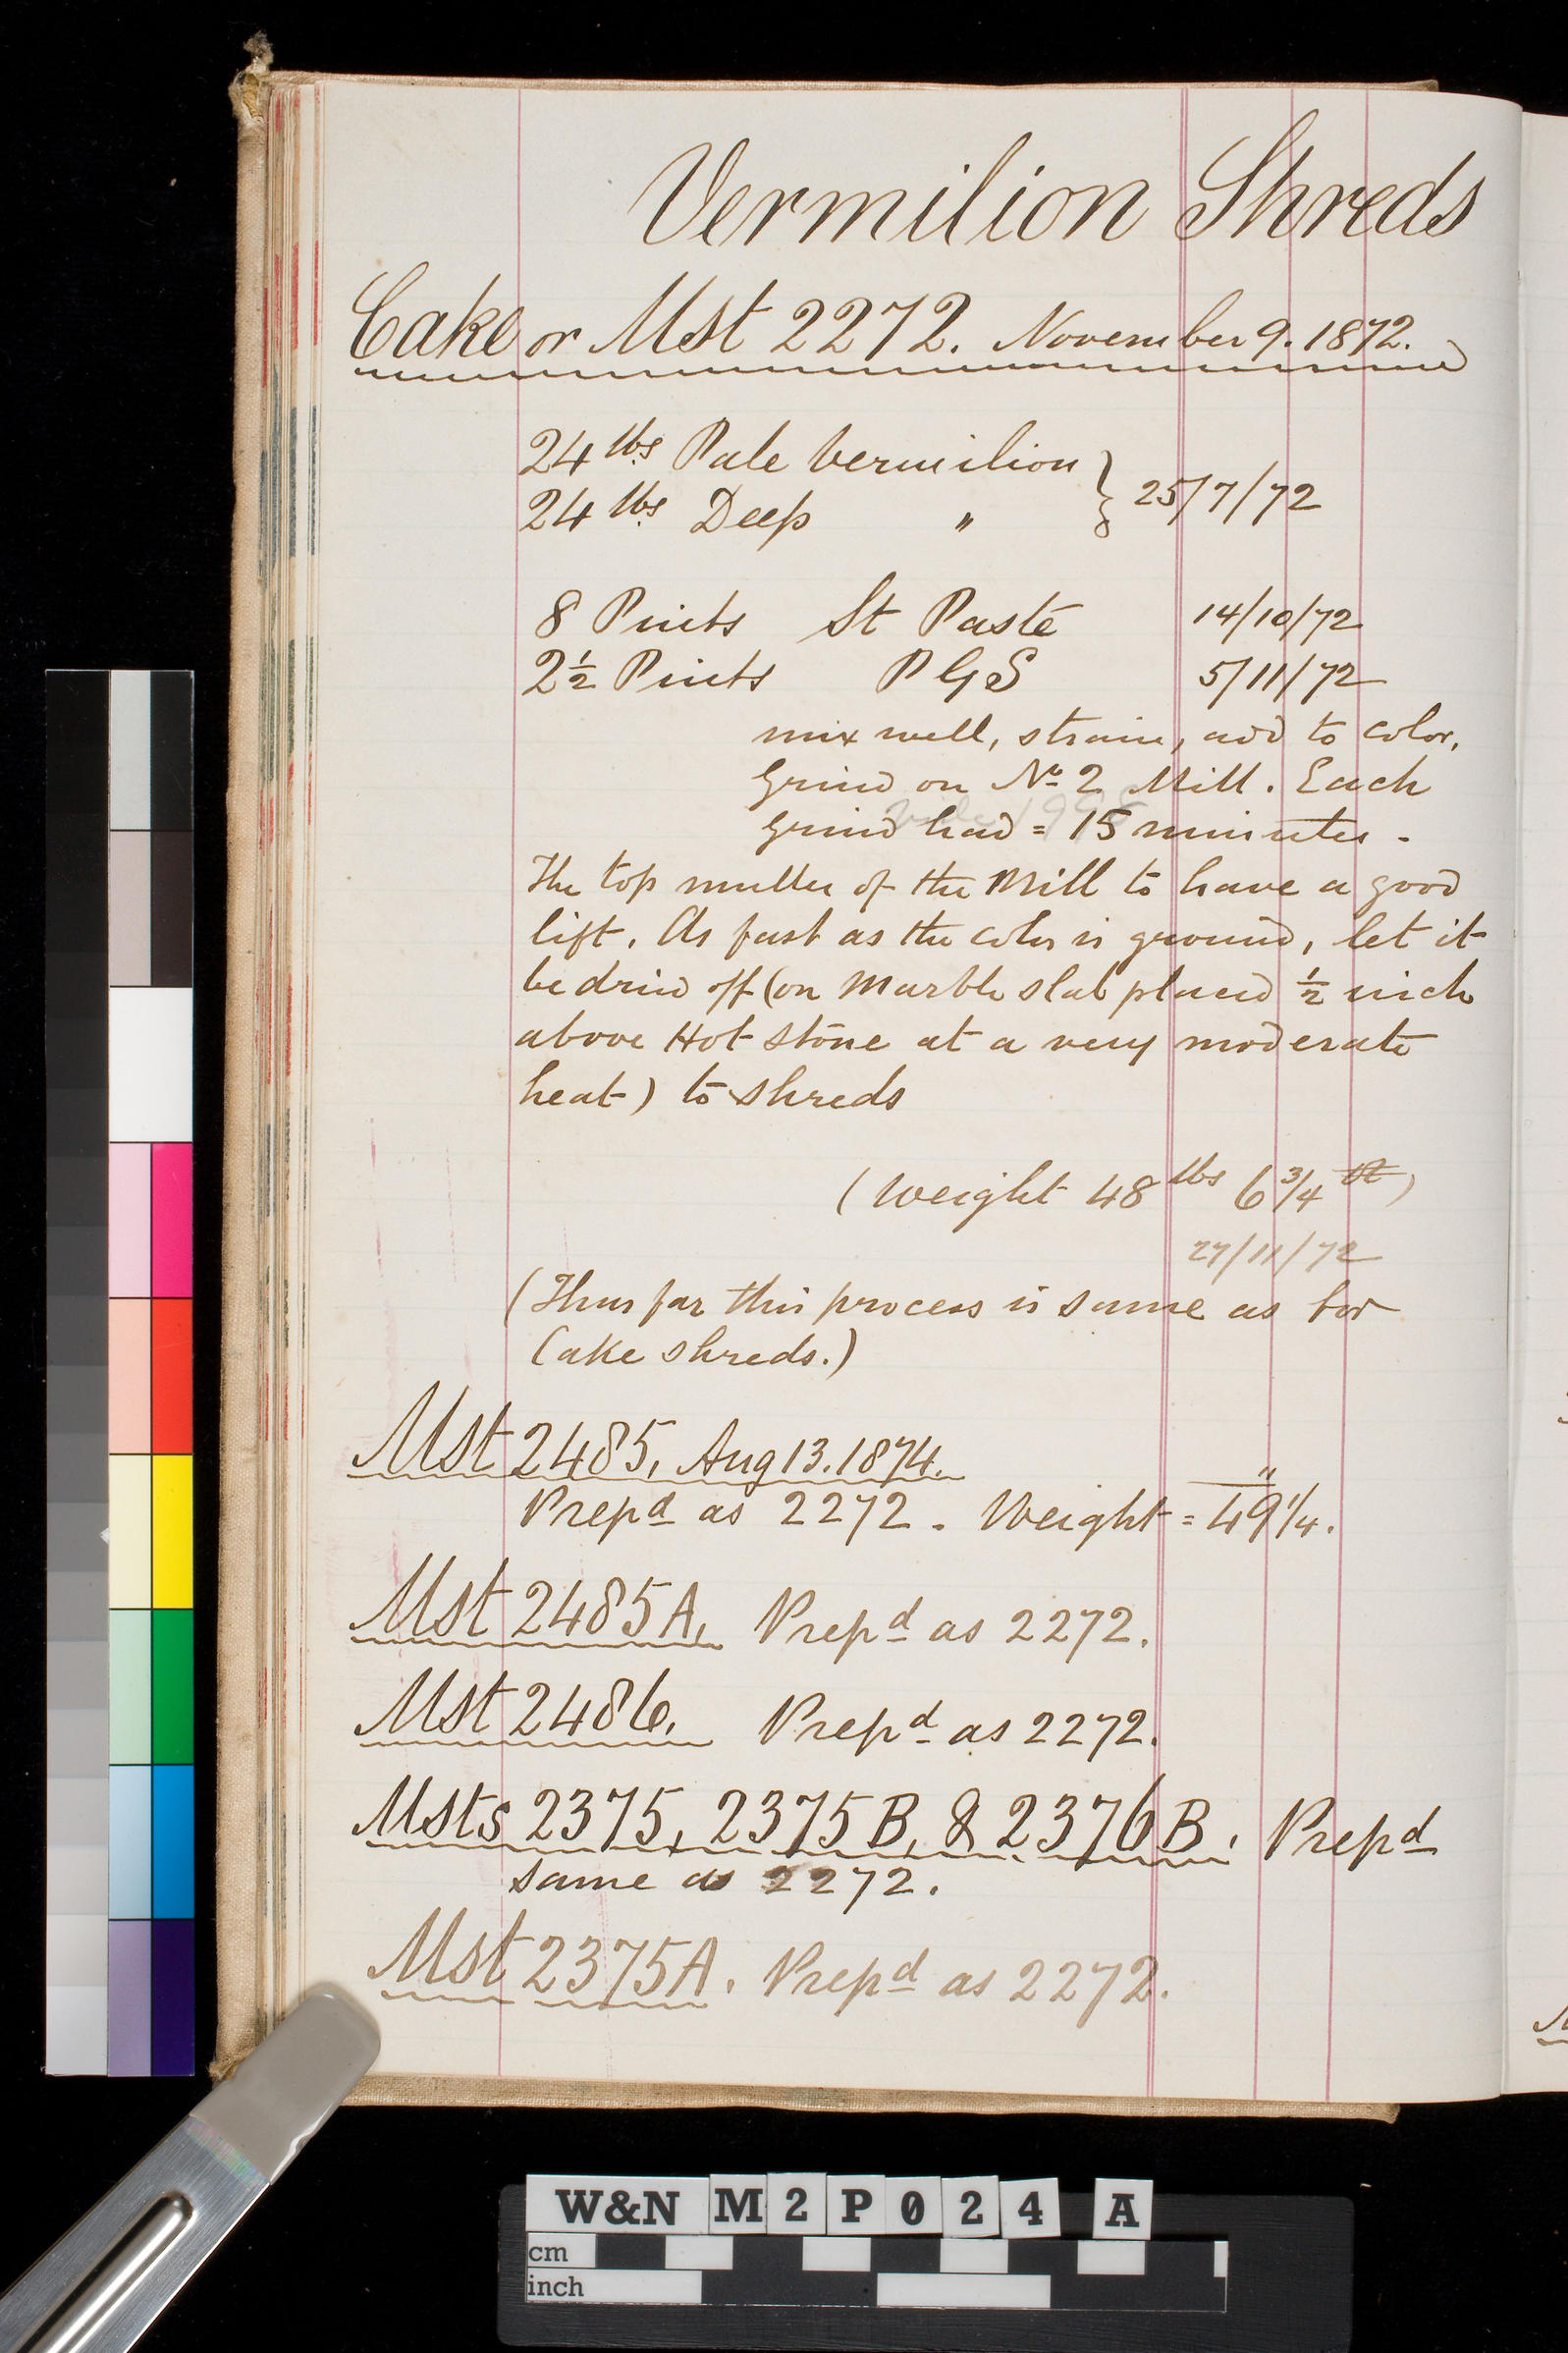 Vermilion Shreds
Cake or Mst 2272. November 9. 1872.
24 lbs Pale Vermilion
24 lbs Deep " } 25/7/72
8 Pints St Paste 14/10/72
2½ Pints P G S 5/11/72
mix well, strain, add to color,
Grind on No 2 Mill. Each
grind had = 15 minutes.
The top muller of the Mill to have a good
lift. As fast as the color is ground, let it
be dried off (on Marble slab placed ½ inch
above Hot stone at a very moderate
heat) to shreds
(Weight 48 lbs 6¾)
27/11/72
(Thus far this process is same as for
Cake shreds.)
Mst 2485, Aug 13. 1874.
Prepd as 2272. Weight = 49¼.
Mst 2485A. Prepd as 2272.
Mst 2486. Prepd as 2272.
Msts 2375, 2375B, & 2376B. Prepd
same as 2272.
Mst 2375A. Prepd as 2272.
W&N M2P024 A
cm
inch